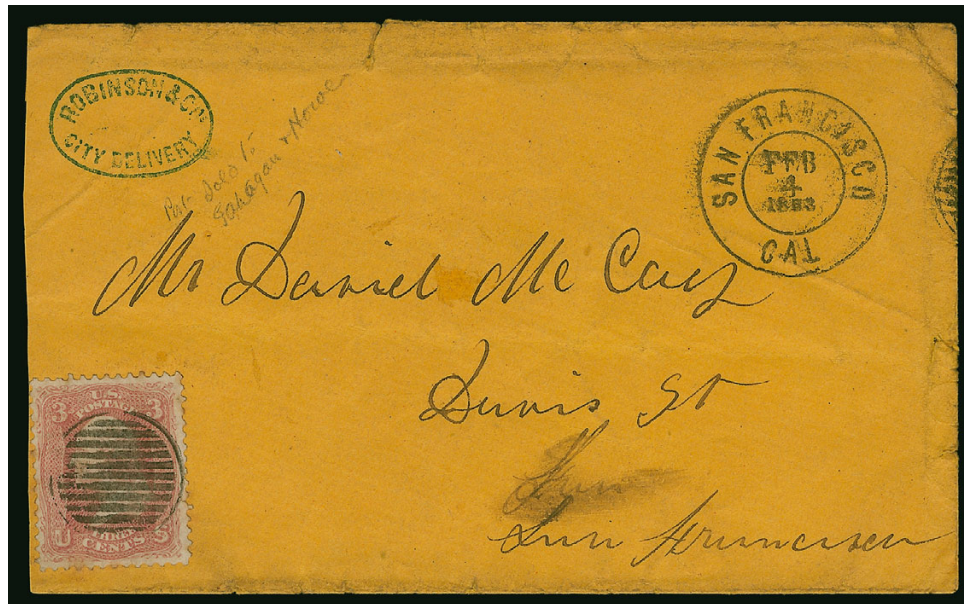 ROBINSON & CO
CITY DELIVERY
Sold to
Gahagan & Howe
SAN FRANCISCO
FEB
4
1863
CAL
Mr Daniel Mc Caey
Davis St
San
San Francisco
3 U.S. 3
POSTAGE
U THREE S
CENTS